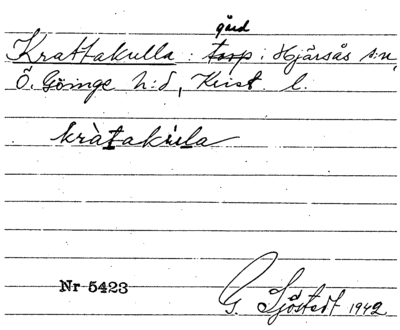 gård
Krattakulla : torp i Hjärsås s:n,
Ö. Göinge h:d, Krist. l.
kràtakúla
Nr 5423
G. Sjöstedt 1942